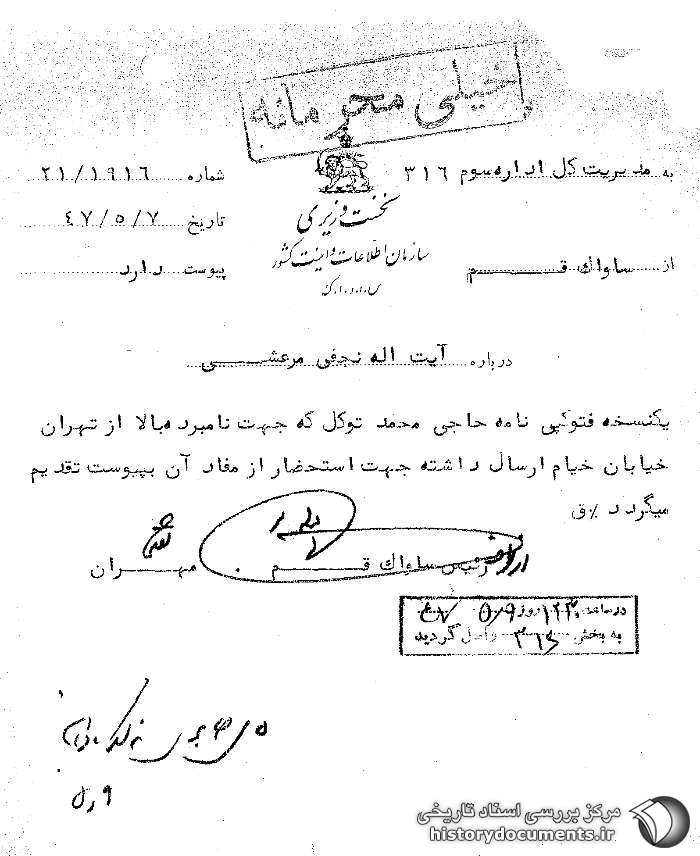 خیلی محرمانه
به مدیریت کل اداره سوم ۳۱۶
شماره ۲۱/۱۹۱۶
نخست وزیری
تاریخ ۴۷/۵/۷
سازمان اطلاعات و امنیت کشور
از ساواک قم
پیوست دارد
س.ا.و.ا.ک
درباره آیت اله نجفی مرعشی
یکنسخه فتوکپی نامه حاجی محمد توکل که جهت نامبرده بالا از تهران
خیابان خیام ارسال داشته جهت استحضار از مفاد آن بپیوست تقدیم
میگردد ٪ق
رئیس ساواک قم . مهران
در ساعت روز ۵/۹
به بخش ۳۱۶ واصل گردید
۵٫۹
مرکز بررسی اسناد تاریخی
historydocuments.ir